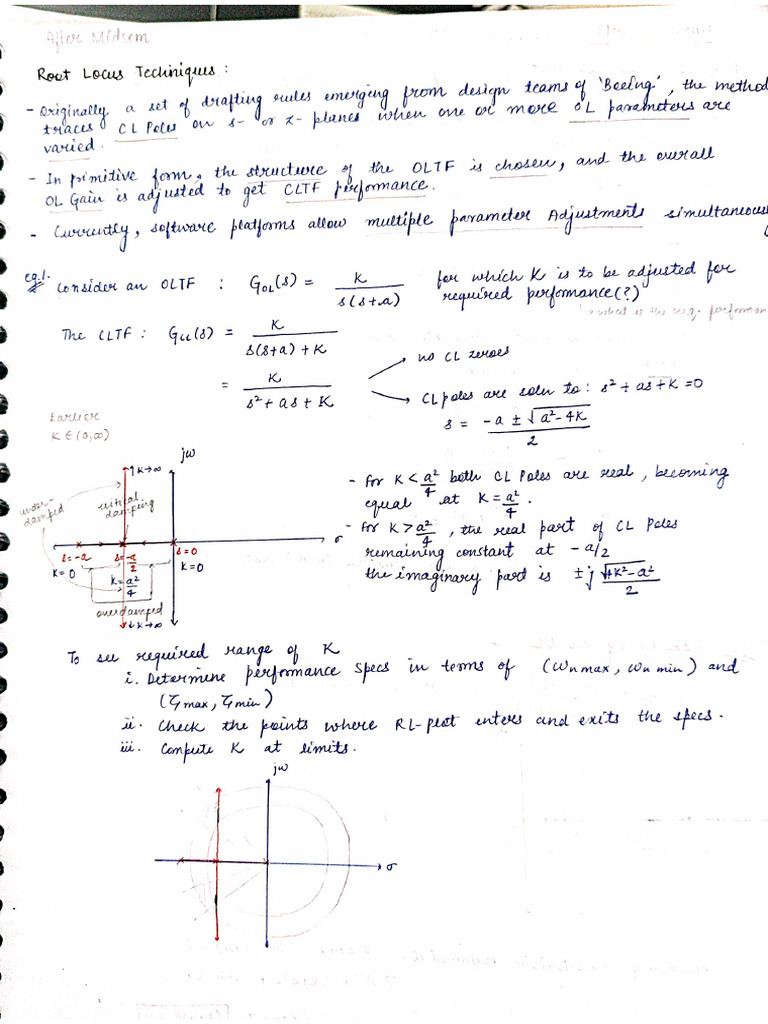 After Midsem
Root Locus Techniques :
- Originally a set of drafting rules emerging from design teams of 'Boeing', the method
traces CL Poles on s- or z- planes when one or more OL parameters are
varied.
- In primitive form, the structure of the OLTF is chosen, and the overall
OL Gain is adjusted to get CLTF performance.
- Currently, software platforms allow multiple parameter Adjustments simultaneously
eg.1. Consider an OLTF : G_OL(s) = K / s(s+a) for which K is to be adjusted for
required performance(?)
→ what is the req. performan
The CLTF : G_CL(s) = K / s(s+a)+K
= K / s²+as+K
→ no CL zeroes
→ CL poles are soln to : s²+as+K=0
s = -a ± √a²-4K / 2
Earlier
K ∈ (0,∞)
jω
↑K→∞
under-
damped
critical
damping
σ
s=-a
s=-a/2
s=0
K=0
K=a²/4
K=0
overdamped
↓K→∞
- for K < a²/4 both CL Poles are real, becoming
equal at K = a²/4.
- for K > a²/4, the real part of CL Poles
remaining constant at -a/2
the imaginary part is ±j √4K²-a² / 2
To see required range of K
i. Determine performance specs in terms of (ωn max, ωn min) and
(ζ max, ζ min)
ii. Check the points where RL-plot enters and exits the specs.
iii. Compute K at limits.
jω
σ